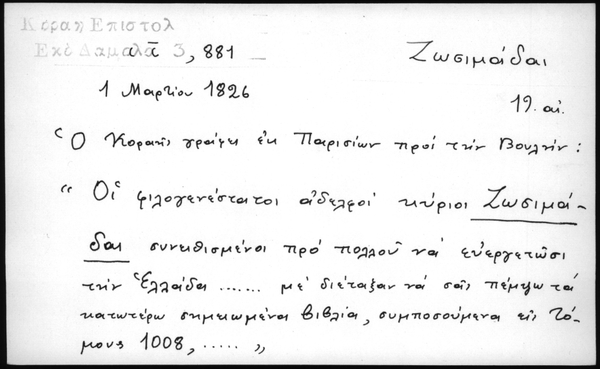 Κοραη Επιστολ
Εκδ Δαμαλά 3, 881
Ζωσιμάδαι
1 Μαρτίου 1826
19. αἰ.
Ὁ Κοραῆς γράφει ἐκ Παρισίων πρὸς τὴν Βουλὴν :
“ Οἱ φιλογενέστατοι ἀδελφοὶ κύριοι Ζωσιμά-
δαι συνειθισμένοι πρὸ πολλοῦ νὰ εὐεργετῶσι
τὴν Ἑλλάδα ....... μὲ διέταξαν νὰ σᾶς πέμψω τὰ
κατωτέρω σημειωμένα βιβλία, συμποσούμενα εἰς Τό-
μους 1008, ..... „